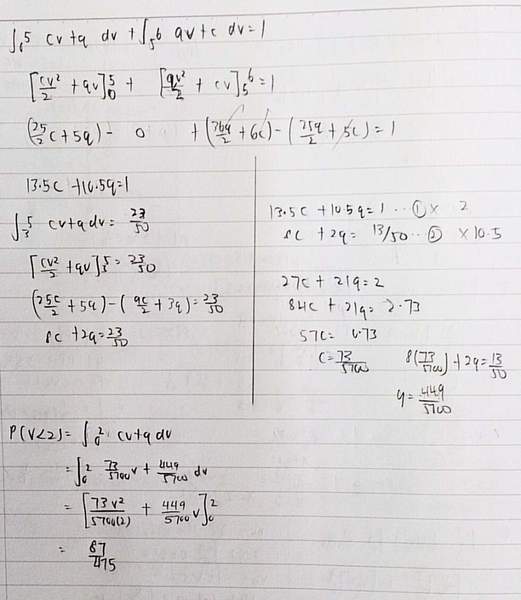 ∫₀⁵ cv+q dv + ∫₅⁶ qv+c dv = 1
[cv²/2 + qv]₀⁵ + [qv²/2 + cv]₅⁶ = 1
(25/2 c + 5q) - 0 + (36q/2 + 6c) - (25q/2 + 5c) = 1
13.5c + 10.5q = 1
∫₃⁵ cv+q dv = 23/50
[cv²/2 + qv]₃⁵ = 23/50
(25c/2 + 5q) - (9c/2 + 3q) = 23/50
8c + 2q = 23/50
13.5c + 10.5q = 1 .. ① × 2
8c + 2q = 13/50 .. ② × 10.5
27c + 21q = 2
84c + 21q = 2.73
57c = 0.73
c = 73/5700
8(73/5700) + 2q = 13/50
q = 449/5700
P(V<2) = ∫₀² cv+q dv
= ∫₀² 73/5700 v + 449/5700 dv
= [73v²/5700(2) + 449/5700 v]₀²
= 87/475